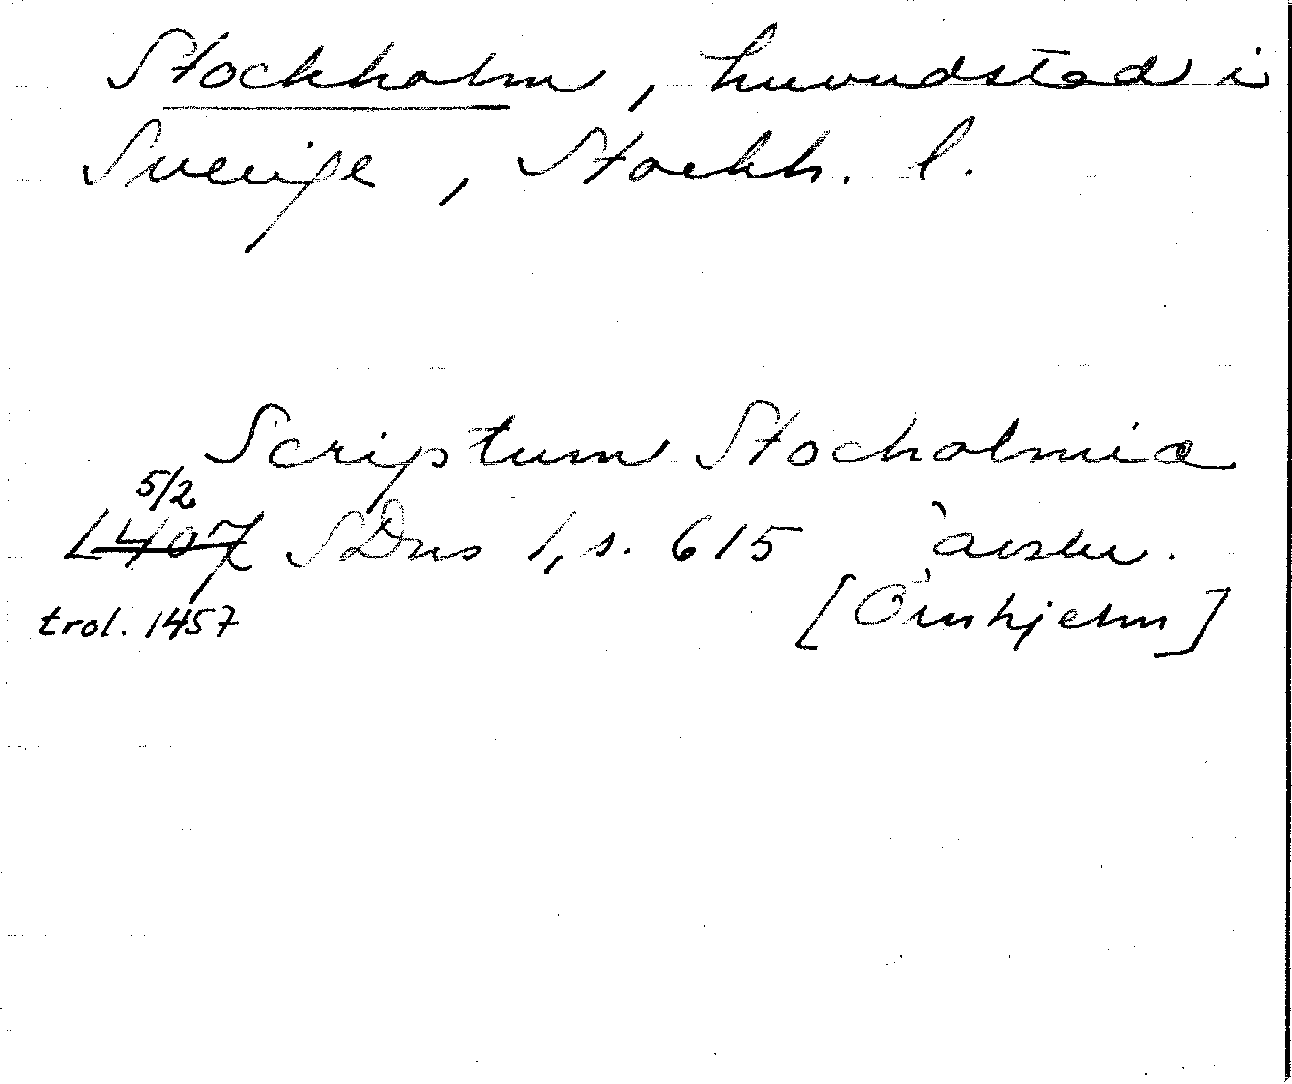 Stockholm, huvudstad i
Sverige, Stockh. l.
Scriptum Stocholmie
5/2
1407 SDns 1, s. 615 avskr.
trol. 1457 [Örnhjelm]